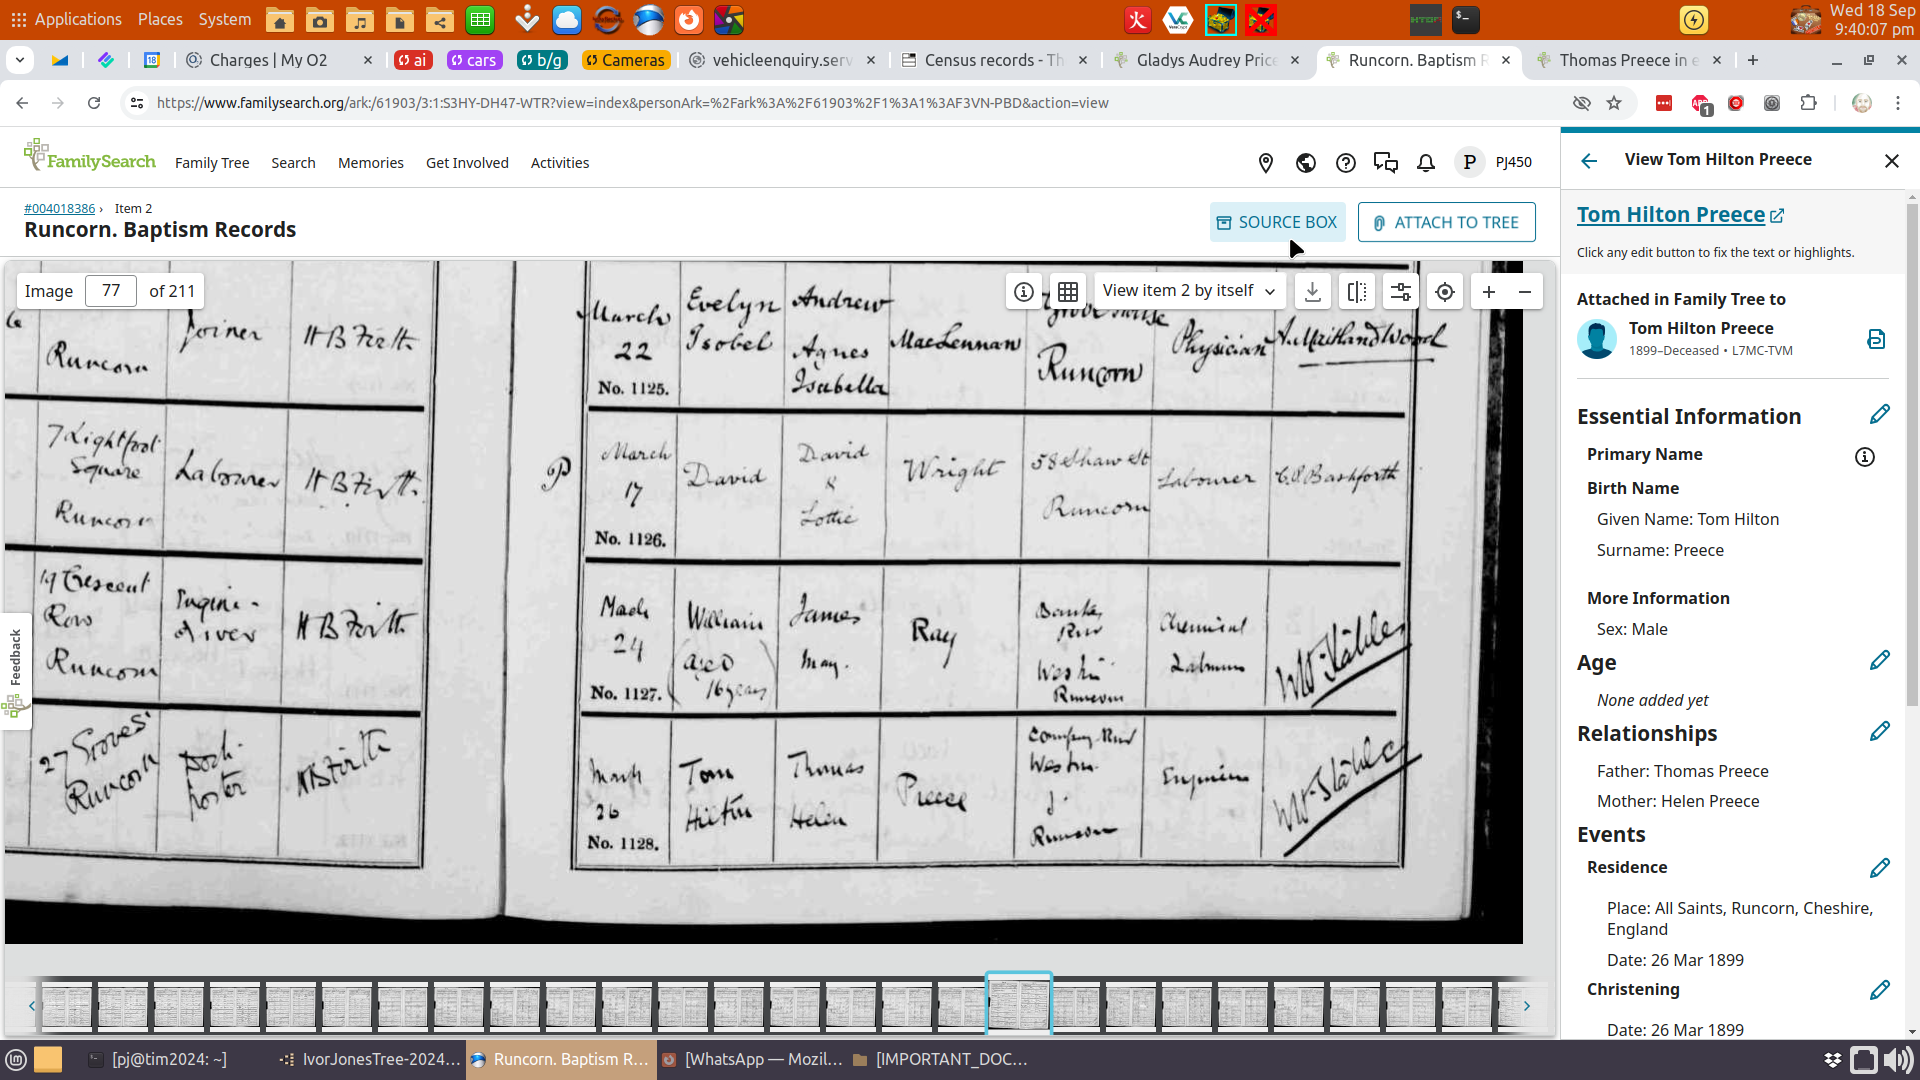 Applications Places System
Wed 18 Sep
9:40:07 pm
Charges | My O2
ai
cars
b/g
Cameras
vehicleenquiry.serv
Census records - Th
Gladys Audrey Price
Runcorn. Baptism R
Thomas Preece in e
https://www.familysearch.org/ark:/61903/3:1:S3HY-DH47-WTR?view=index&personArk=%2Fark%3A%2F61903%2F1%3A1%3AF3VN-PBD&action=view
FamilySearch
Family Tree
Search
Memories
Get Involved
Activities
P PJ450
#004018386 › Item 2
Runcorn. Baptism Records
SOURCE BOX
ATTACH TO TREE
Image 77 of 211
View item 2 by itself
Runcorn
Joiner
H B Firth
7 Lightfoot
Square
Runcorn
Labourer
H B Firth
19 Crescent
Row
Runcorn
Engine-
driver
H B Firth
27 Groves
Runcorn
Dock
porter
H B Firth
March
22
No. 1125.
Evelyn
Isobel
Andrew
Agnes
Isabella
MacLennan
Runcorn
Physician
A. Maitland Wood
P
March
17
No. 1126.
David
David
&
Lottie
Wright
58 Shaw St
Runcorn
Labourer
March
24
No. 1127.
William
(aged
16 years)
James
May.
Ray
Weston
Runcorn
Chemical
Labourer
March
26
No. 1128.
Tom
Hilton
Thomas
Helen
Preece
Weston
Runcorn
Feedback
View Tom Hilton Preece
Tom Hilton Preece
Click any edit button to fix the text or highlights.
Attached in Family Tree to
Tom Hilton Preece
1899–Deceased • L7MC-TVM
Essential Information
Primary Name
Birth Name
Given Name: Tom Hilton
Surname: Preece
More Information
Sex: Male
Age
None added yet
Relationships
Father: Thomas Preece
Mother: Helen Preece
Events
Residence
Place: All Saints, Runcorn, Cheshire,
England
Date: 26 Mar 1899
Christening
Date: 26 Mar 1899
[pj@tim2024: ~]
IvorJonesTree-2024...
Runcorn. Baptism R...
[WhatsApp — Mozil...
[IMPORTANT_DOC...